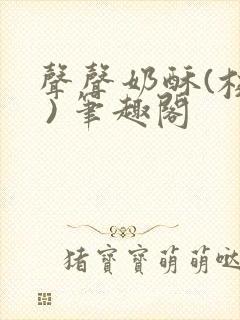 聲聲奶酥(校
)筆趣閣
猪寶寶萌萌噠